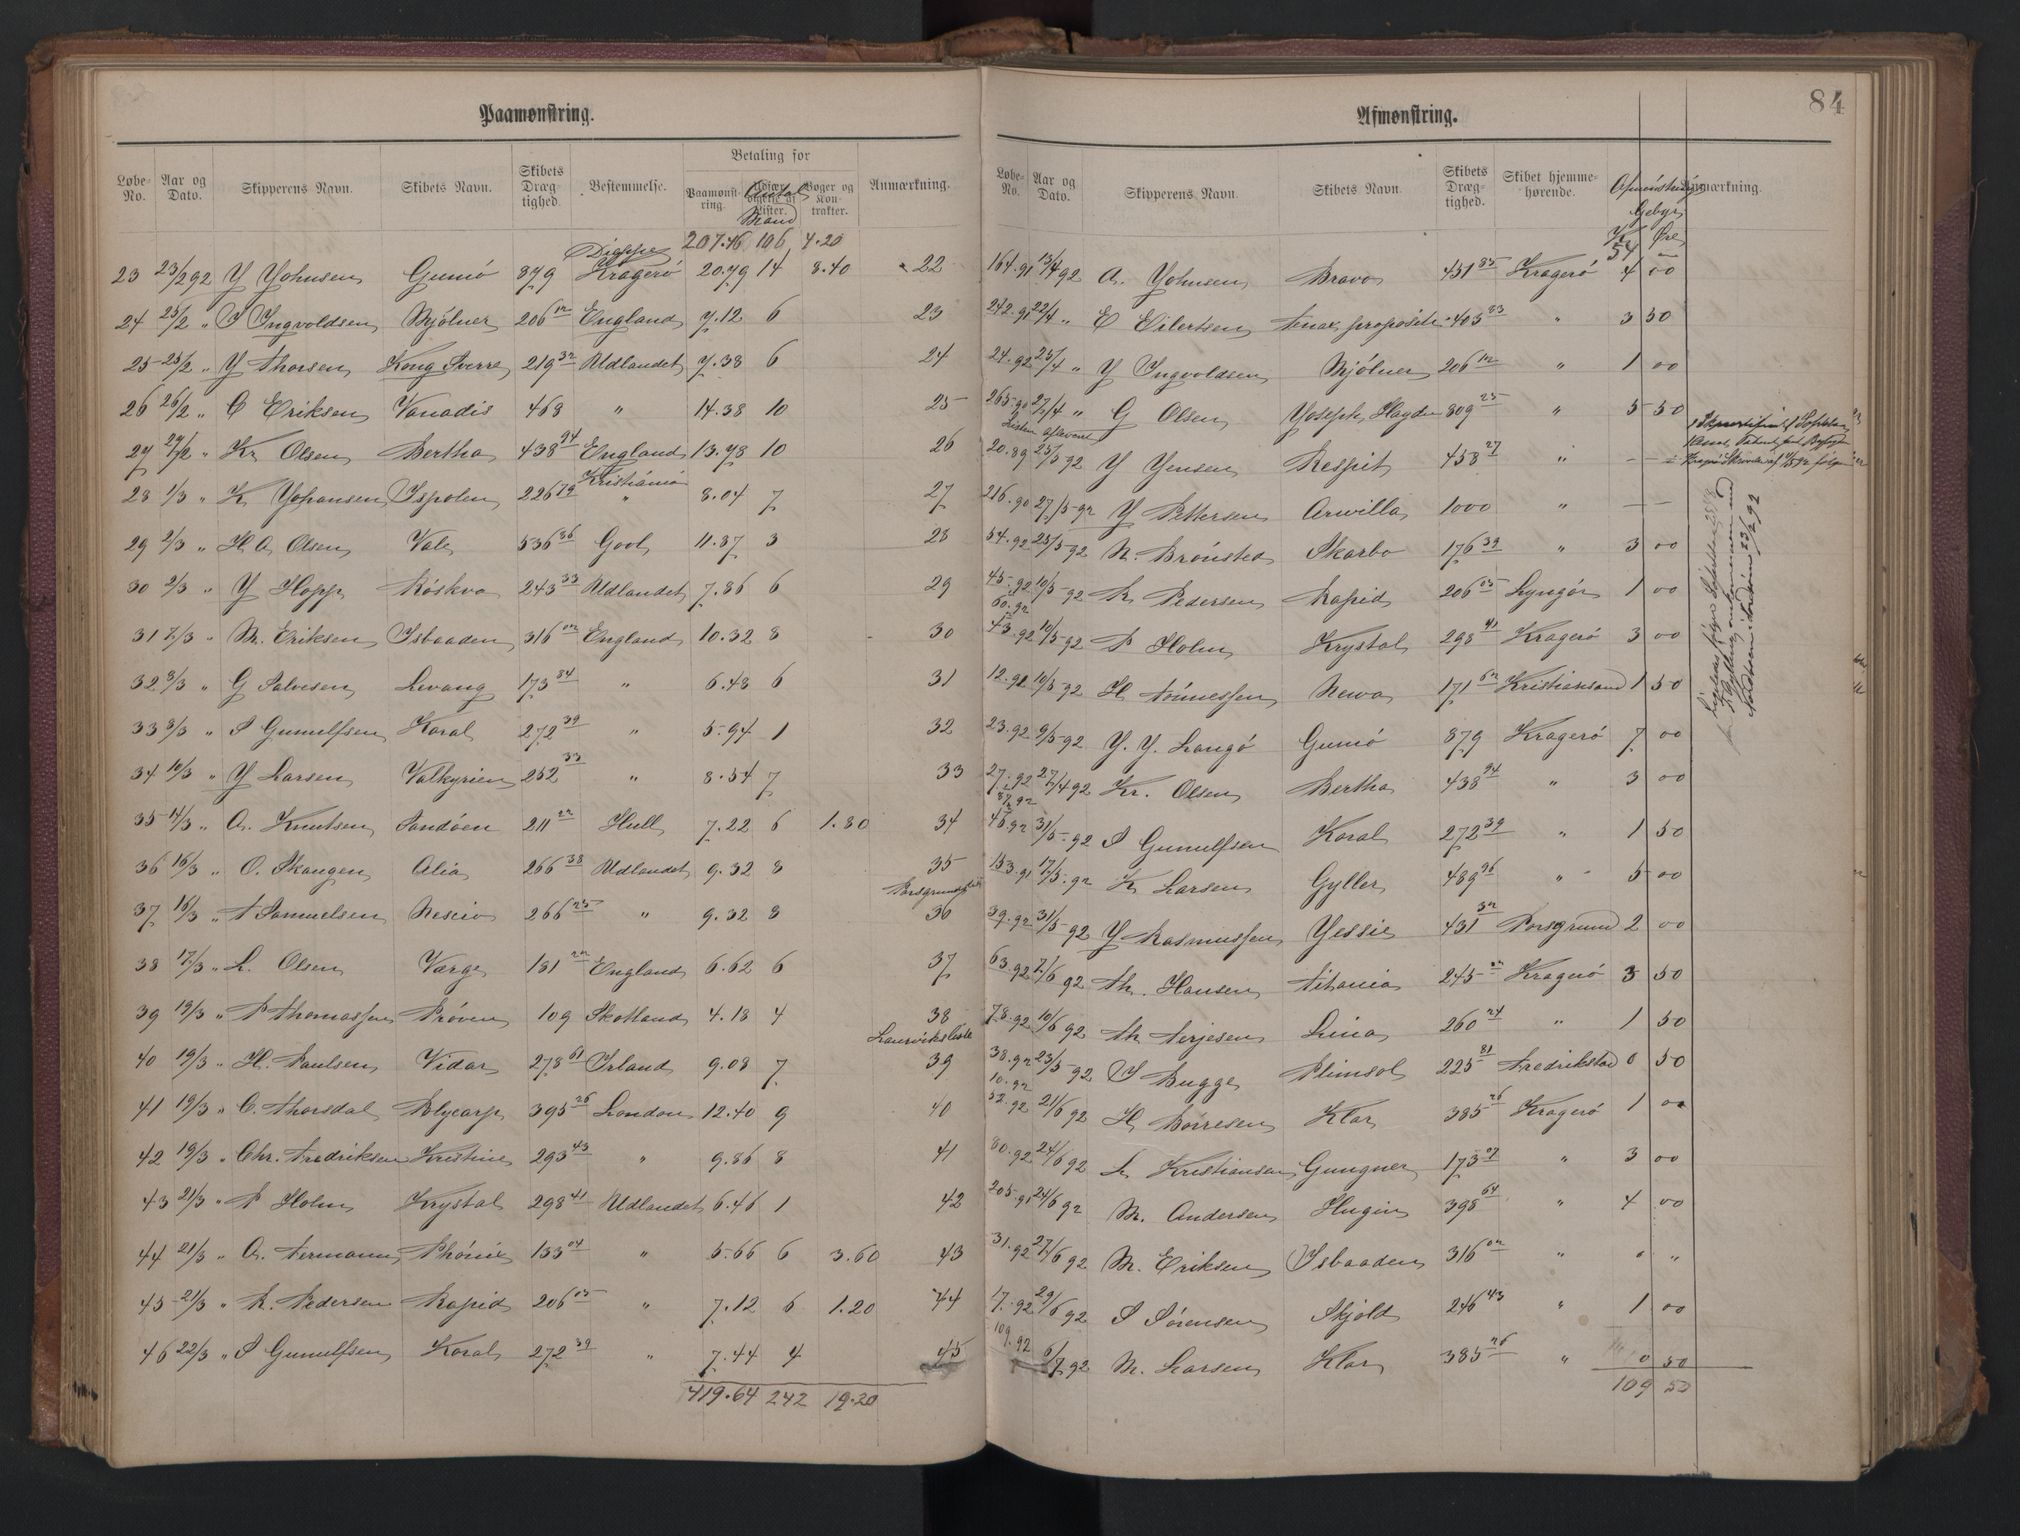 84
Paamønstring.
Løbe-No. Aar og Dato. Skipperens Navn. Skibets Navn. Skibets Dræg-tighed. Bestemmelse. Betaling for Paamønst-ring. Udfær-digelse af Lister. Bøger og Kon-trakter. Anmærkning.
Antal Mand
207.46 106 4.20
23 23/2 92 J Johnsen Gumö 879 Dieppe Kragerö 20.79 14 8.40
24 25/2 " J Ingvoldsen Mjölner 206 12 England 7.12 6
25 25/2 " J Thorsen Kong Sverre 219 32 Udlandet 7.38 6
26 26/2 " C Eriksen Vanadis 468 " 14.38 10
27 29/2 " Kr Olsen Bertha 438 94 England 13.78 10
28 1/3 " K Johansen Ispolen 226 79 Kristiania " 8.04 7
29 2/3 " H A Olsen Vale 536 86 Gool 11.87 3
30 2/3 " J Hopp Röskva 243 33 Udlandet 7.86 6
31 7/3 " M. Eriksen Isbaaden 316 02 England 10.32 8
32 8/3 " G Salvesen Levang 173 84 " 6.48 6
33 8/3 " S Gunulfsen Koral 272 39 " 5.94 1
34 10/3 " J Larsen Valkyrien 252 33 " 8.54 7
35 14/3 " A. Knutsen Sandöen 211 22 Hull 7.22 6 1.80
36 16/3 " O. Skougen Alia 266 38 Udlandet 9.32 8
37 16/3 " T Samuelsen Nescio 266 25 " 9.32 8
38 17/3 " L. Olsen Værge 181 22 England 6.62 6
39 19/3 " P Thomassen Pröven 109 Skotland 4.18 4
40 19/3 " H. Paulsen Vidar 278 61 Irland 9.08 7
41 19/3 " C. Thorsdal Polycarp 395 26 London 12.40 9
42 19/3 " Chr. Fredriksen Kristine 293 43 " 9.86 8
43 21/3 " P Holm Krystal 298 41 Udlandet 6.46 1
44 21/3 " A. Termann Phönix 133 04 " 5.66 6 3.60
45 21/3 " R. Pedersen Rapid 206 03 " 7.12 6 1.20
46 22/3 " S Gunulfsen Koral 272 39 " 7.44 4
419.64 242 19.20
Afmønstring.
Løbe-No. Aar og Dato. Skipperens Navn. Skibets Navn. Skibets Dræg-tighed. Skibet hjemme-hørende. Anmærkning.
Afmönstrings Gebyr
Kr Øre
54 —
22 164.91 13/4 92 A. Johnsen Bravo 451 85 Kragerö 4 00
23 242.91 22/4 " E Eilertsen Tenax propositi 403 83 " 3 50
24 24.92 25/4 " J Ingvoldsen Mjölner 206 12 " 1 00
25 265.90 27/4 " G Olsen Joseph Haydn 809 25 " 5 50
Listen afleveret
26 20.89 25/5 92 J Jensen Respit 458 27 " — —
27 216.90 27/5 92 J Pettersen Arvilla 1000 " — —
28 54.92 25/5 92 N. Brönsted Skarbo 176 39 " 3 00
29 45.92 10/5 92 R Pedersen Rapid 206 03 Lyngör 1 00
60.92
30 43.92 10/5 92 P Holm Krystal 298 41 Kragerö 3 00
31 12.92 10/5 92 H Tönnessen Newa 171 62 Kristiansand 1 50
32 23.92 9/5 92 J. J. Langö Gumö 879 Kragerö 7 00
33 27.92 27/4 92 Kr. Olsen Bertha 438 94 " 3 00
87.92
34 46.92 31/5 92 S Gunulfsen Koral 272 39 " 1 50
35 153.91 17/5 92 K Larsen Gyller 489 96 " 5 00
Porsgrundsliste
36 39.92 31/5 92 J Rasmussen Jessie 431 32 Porsgrund 2 00
37 63.92 7/6 92 Th. Hansen Titania 245 22 Kragerö 3 50
38 78.92 10/6 92 Th Terjesen Lina 260 24 " 1 50
Laurviksliste
39 38.92 23/5 92 J Bugge Plimsol 225 81 Fredrikstad 0 50
10.92
40 52.92 21/6 92 H Börresen Klar 385 26 Kragerö 1 00
41 80.92 24/6 92 L Kristiansen Gungner 173 07 " 3 00
42 205.91 24/6 92 M. Andersen Hugin 398 64 " 4 00
43 31.92 27/6 92 M. Eriksen Isbaaden 316 02 " " "
44 17.92 29/6 92 S Sörensen Skjold 246 43 " 1 00
45 109.92 6/7 92 M. Larsen Klar 385 26 " 0 50
109 50